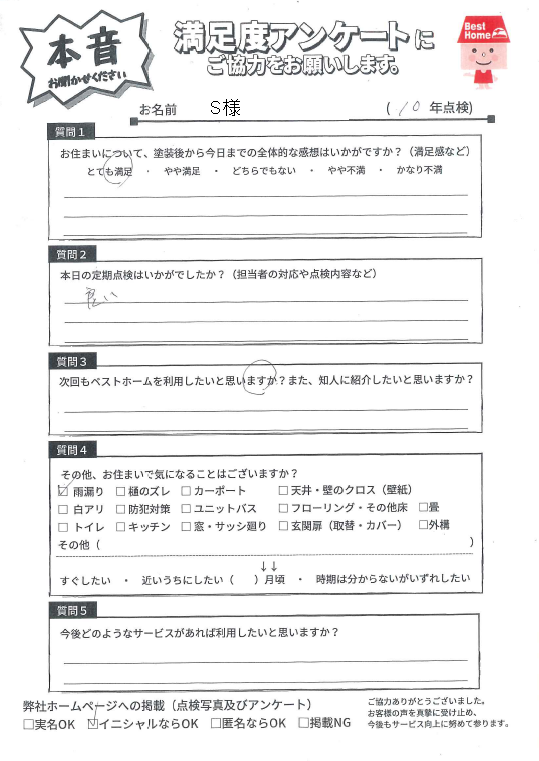 本音
お聞かせください
満足度アンケートに
ご協力をお願いします。
Best Home
お名前 S様 ( 10 年点検)
質問1
お住まいについて、塗装後から今日までの全体的な感想はいかがですか？（満足感など）
とても満足 ・ やや満足 ・ どちらでもない ・ やや不満 ・ かなり不満
質問2
本日の定期点検はいかがでしたか？（担当者の対応や点検内容など）
良い
質問3
次回もベストホームを利用したいと思いますか？また、知人に紹介したいと思いますか？
質問4
その他、お住まいで気になることはございますか？
☑ 雨漏り □ 樋のズレ □ カーポート □ 天井・壁のクロス（壁紙）
□ 白アリ □ 防犯対策 □ ユニットバス □ フローリング・その他床 □畳
□ トイレ □ キッチン □ 窓・サッシ廻り □ 玄関扉（取替・カバー） □外構
その他（ ）
↓↓
すぐしたい ・ 近いうちにしたい（ ）月頃 ・ 時期は分からないがいずれしたい
質問5
今後どのようなサービスがあれば利用したいと思いますか？
弊社ホームページへの掲載（点検写真及びアンケート）
□実名OK ☑イニシャルならOK □匿名ならOK □掲載NG
ご協力ありがとうございました。
お客様の声を真摯に受け止め、
今後もサービス向上に努めて参ります。